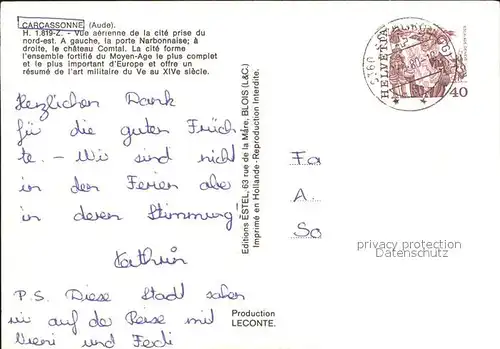 CARCASSONNE (Aude).
H. 1.819-Z. - Vue aérienne de la cité prise du
nord-est. A gauche, la porte Narbonnaise; à
droite, le château Comtal. La cité forme
l'ensemble fortifié du Moyen-Age le plus complet
et le plus important d'Europe et offre un
résumé de l'art militaire du Ve au XIVe siècle.
Herzlichen Dank
für die guten Früch
te. - Wir sind nicht
in den Ferien aber
in deren Stimmung!
Kathrin
P.S. Diese Stadt sahen
wir auf der Reise mit
Vreni und Fredi
Editions ESTEL, 63 rue de la Mare, BLOIS (L&C)
Imprimé en Hollande - Reproduction Interdite.
Production
LECONTE.
HELVETIA
40
Fa
A.
So
privacy protection
Datenschutz